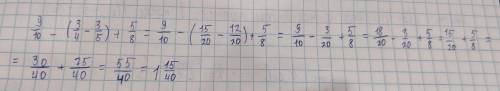 9/10 - (3/4 - 3/5) + 5/8 = 9/10 - (15/20 - 12/20) + 5/8 = 9/10 - 3/20 + 5/8 = 18/20 - 3/20 + 5/8 = 15/20 + 5/8 =
= 30/40 + 25/40 = 55/40 = 1 15/40